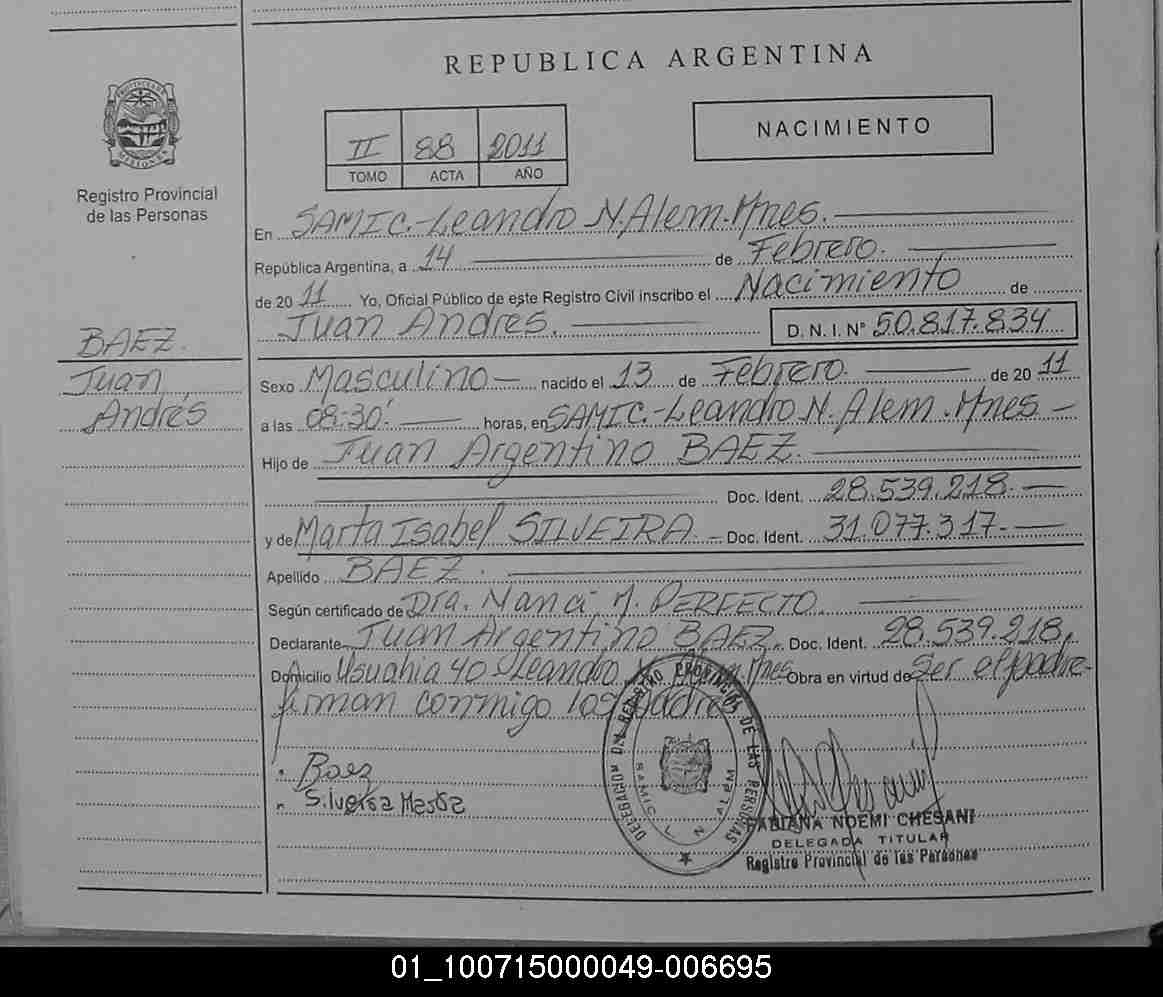 REPUBLICA ARGENTINA
PROVINCIA DE MISIONES
Registro Provincial
de las Personas
II 88 2011
TOMO ACTA AÑO
NACIMIENTO
En SAMIC.-Leandro N. Alem.Mnes.
República Argentina, a 14 de Febrero.
de 2011 Yo, Oficial Público de este Registro Civil inscribo el Nacimiento de
Juan Andres. D. N. I. N° 50.817.834
BAEZ.
Juan
Andrés
Sexo Masculino nacido el 13 de Febrero. de 2011
a las 08:30' horas, en SAMIC.-Leandro N. Alem.Mnes
Hijo de Juan Argentino BAEZ.
Doc. Ident. 28.539.218.
y de Marta Isabel SILVEIRA. Doc. Ident. 31.077.317.
Apellido BAEZ.
Según certificado de Dra. Nanci M. PERFECTO.
Declarante Juan Argentino BAEZ. Doc. Ident. 28.539.218,
Domicilio Usuahia 40 Leandro N. Alem Mnes Obra en virtud de Ser el padre
firman conmigo los padres
Baez
Marta
DELEGACION DEL REGISTRO PROVINCIAL DE LAS PERSONAS
SAMIC L N ALEM
FABIANA NOEMI CHESANI
DELEGADA TITULAR
Registro Provincial de las Personas
01_100715000049-006695